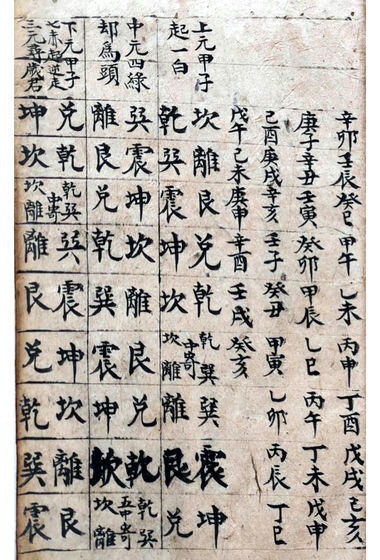 辛卯 壬辰 癸巳 甲午 乙未 丙申 丁酉 戊戌 己亥
庚子 辛丑 壬寅 癸卯 甲辰 乙巳 丙午 丁未 戊申
己酉 庚戌 辛亥 壬子 癸丑 甲寅 乙卯 丙辰 丁巳
戊午 己未 庚申 辛酉 壬戌 癸亥
上元甲子
起一白
坎 離 艮 兌 乾 乾巽 中寄 巽 震 坤
乾 巽 震 坤 坎 坎離 離 艮 兌
中元四綠
却為頭
巽 震 坤 坎 離 艮 兌 乾 乾巽
離 艮 兌 乾 巽 震 坤 坎 中寄 坎離
下元甲子
七赤起逆走
三元尋歲君
兌 乾 乾巽 中寄 巽 震 坤 坎 離 艮
坤 坎 坎離 離 艮 兌 乾 巽 震